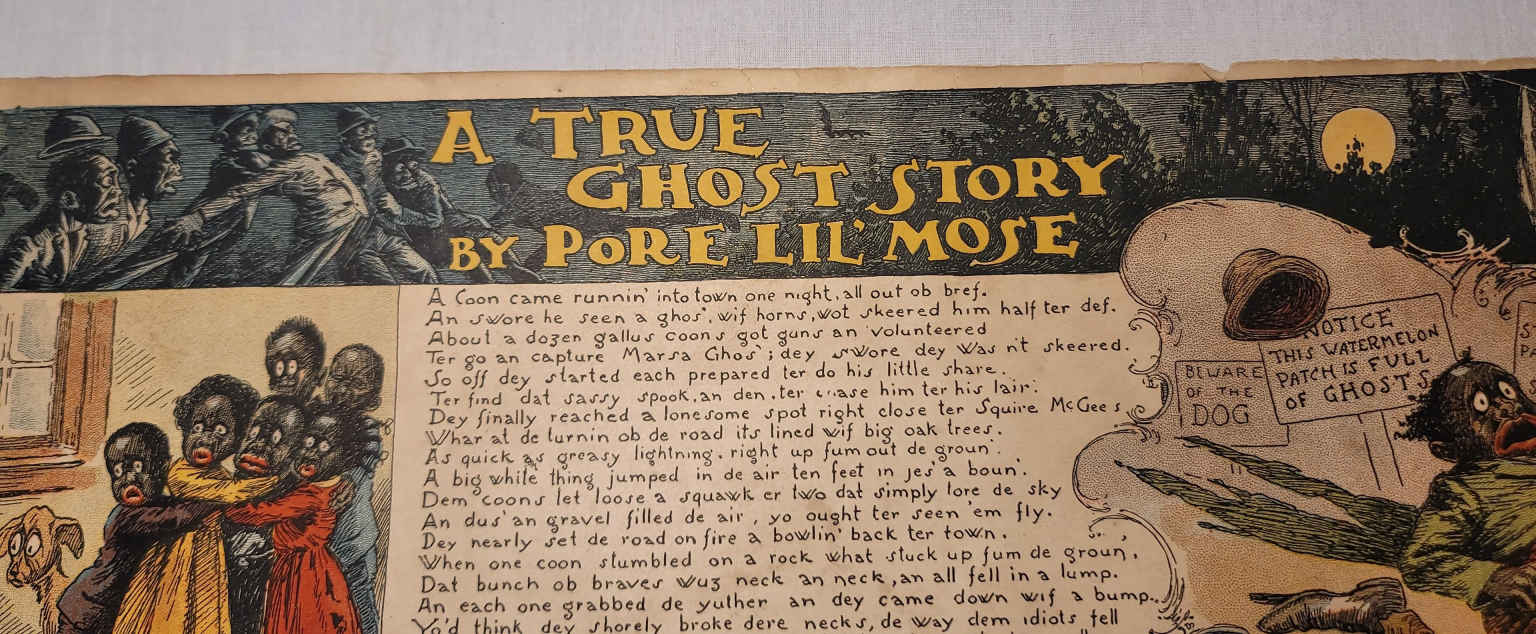 A TRUE
GHOST STORY
BY PORE LIL' MOSE
A Coon came runnin' into town one night, all out ob bref.
An swore he seen a ghos', wif horns, wot skeered him half ter def.
About a dozen gallus coons got guns an' volunteered
Ter go an capture Marsa Ghos'; dey swore dey was n't skeered.
So off dey started each prepared ter do his little share.
Ter find dat sassy spook, an den, ter chase him ter his lair.
Dey finally reached a lonesome spot right close ter Squire McGees
Whar at de turnin ob de road its lined wif big oak trees.
As quick as greasy lightning, right up fum out de groun'.
A big white thing jumped in de air ten feet in jes' a boun'.
Dem coons let loose a squawk er two dat simply tore de sky
An dus' an gravel filled de air, yo ought ter seen 'em fly.
Dey nearly set de road on fire a bowlin' back ter town.
When one coon stumbled on a rock what stuck up fum de groun,
Dat bunch ob braves wuz neck an neck, an all fell in a lump.
An each one grabbed de yuther an dey came down wif a bump.
Yo'd think dey shorely broke dere necks, de way dem idiots fell
BEWARE
OF THE
DOG
NOTICE
THIS WATERMELON
PATCH IS FULL
OF GHOSTS